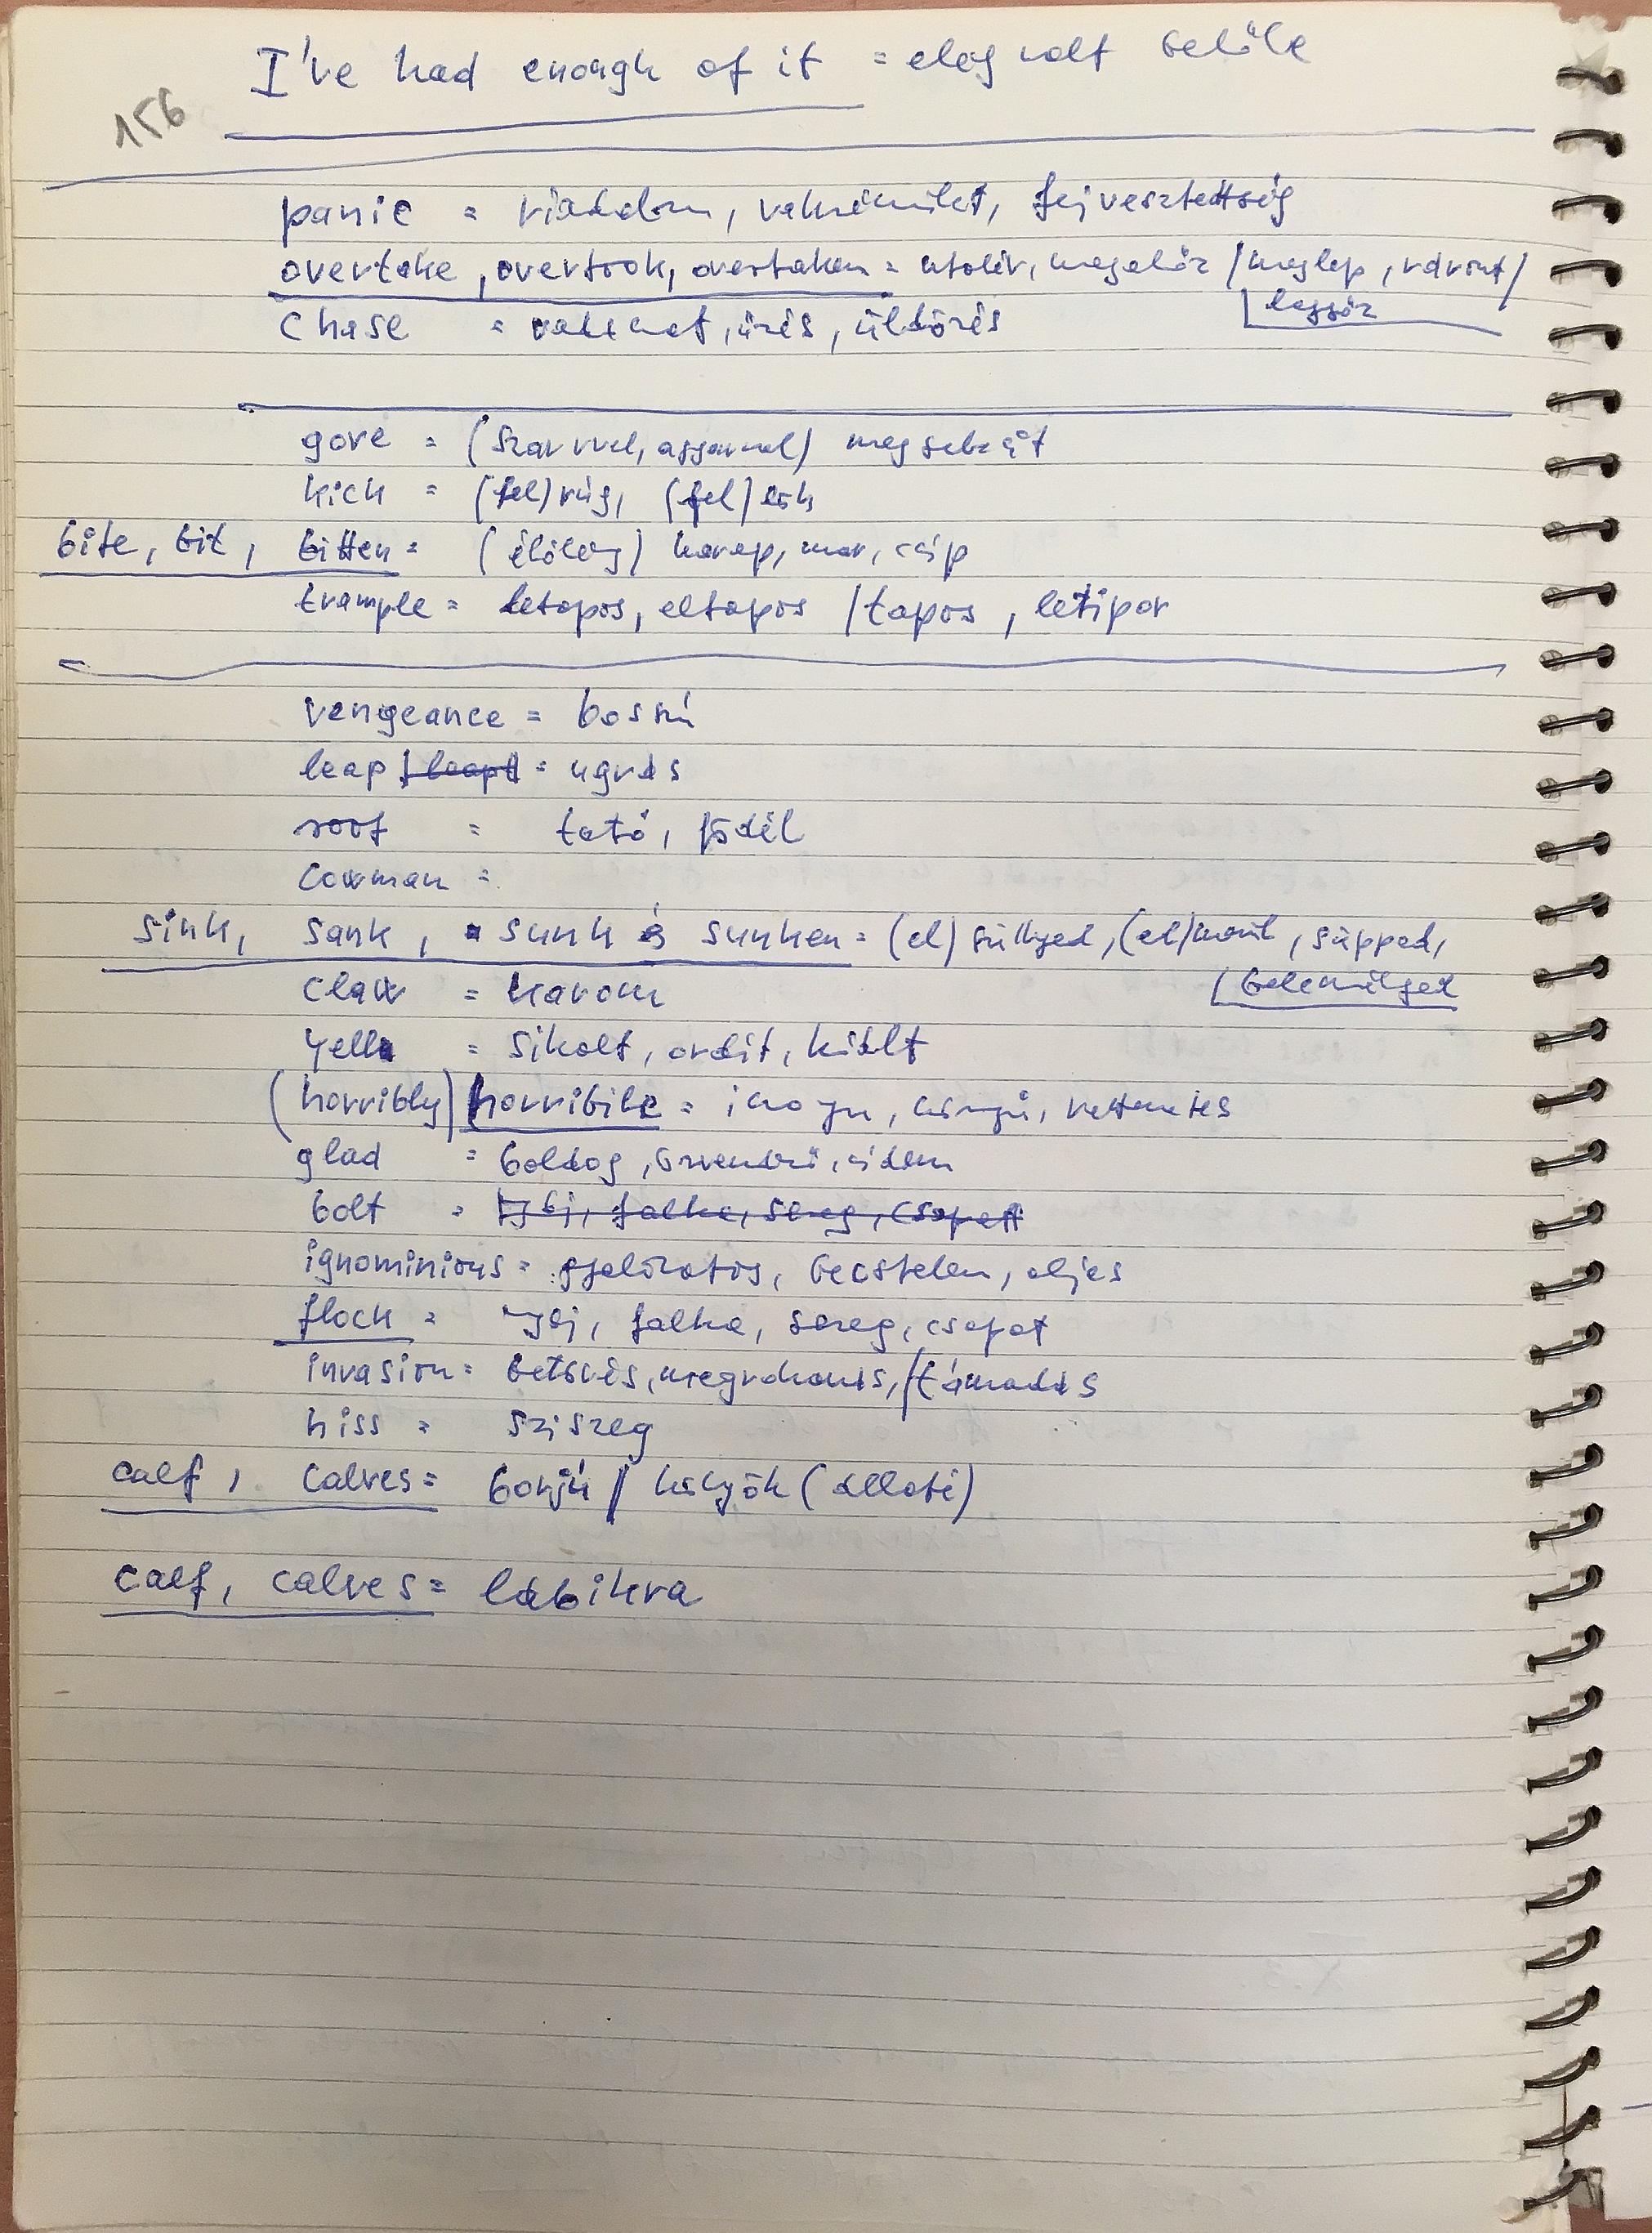 I've had enough of it = elég volt belőle
156
panic = riadalom, vakrémület, fejvesztettség
overtake, overtook, overtaken = utolér, megelőz / meglep, ráront /
legyőz
chase = vadászat, űzés, üldözés
gore = (szarvval, agyarral) megsebzett
kick = (fel)rúg, (fel)lök
bite, bit, bitten = (élőlény) harap, mar, csíp
trample = letapos, eltapos / tapos, letipor
vengeance = bosszú
leap = ugrás
roof = tető, födél
cowman =
sink, sank, sunk és sunken = (el)süllyed, (el)merül, süpped,
belemélyed
claw = karom
yell = sikolt, ordít, kiált
(horribly) horribile = iszonyú, szörnyű, rettenetes
glad = boldog, örvendő, vidám
bolt = nyáj, falka, sereg, csapat
ignominious = gyalázatos, becstelen, aljas
flock = nyáj, falka, sereg, csapat
invasion = betörés, megrohanás, / támadás
hiss = sziszeg
calf, calves = borjú / kölyök (állati)
calf, calves = lábikra